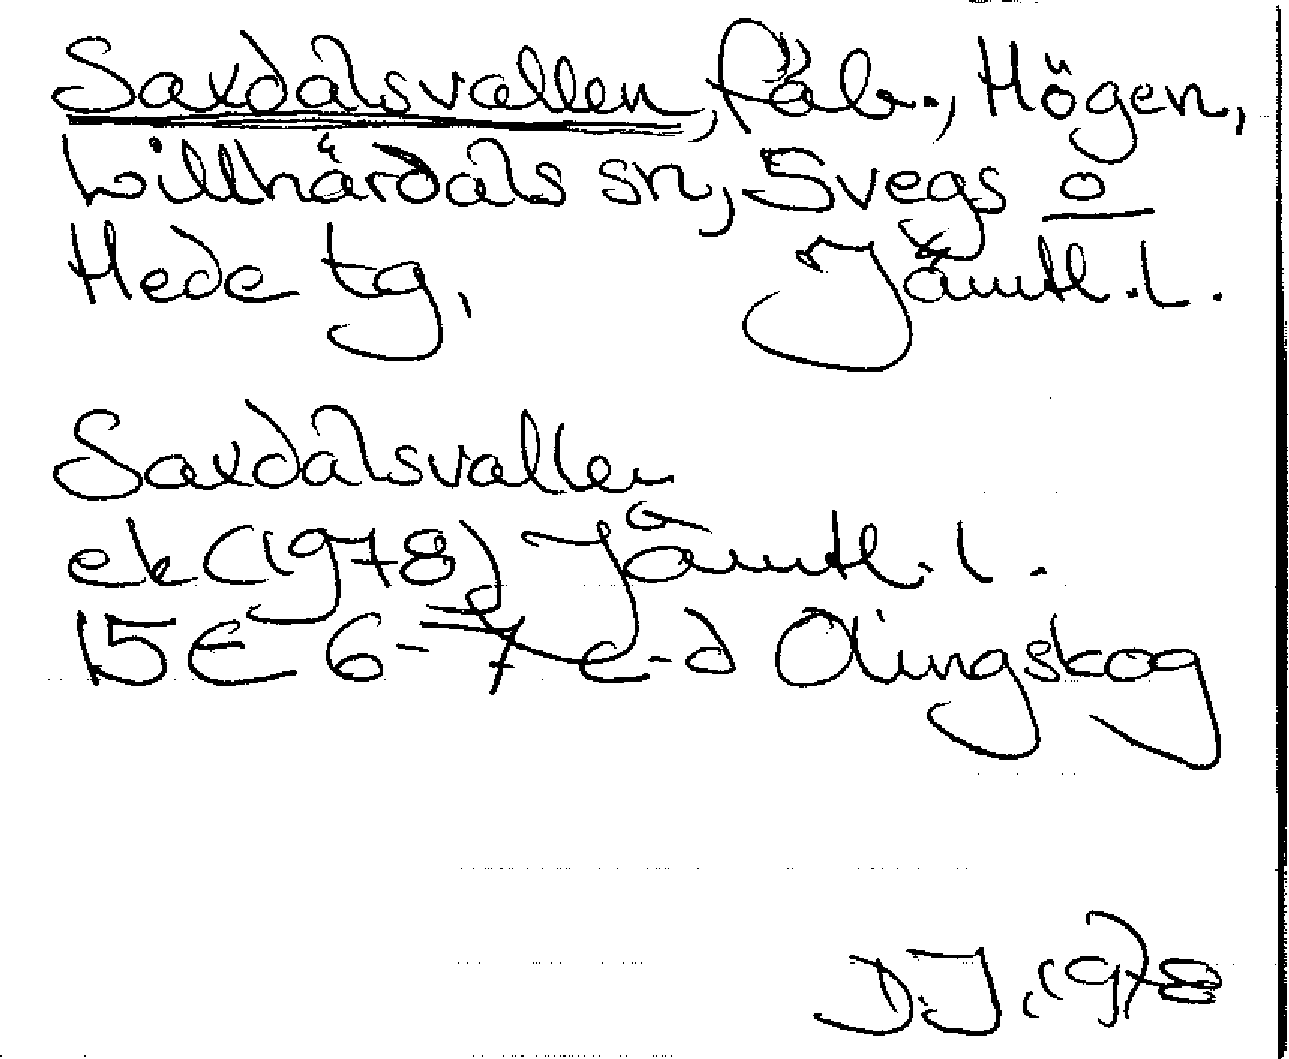 Saxdalsvallen, fäb., Högen,
Lillhärdals sn, Svegs o
Hede tg, Jämtl.l.
Saxdalsvallen
ek (1978) Jämtl.l.
15E 6-7 c-d Olingskog
DJ, 1978